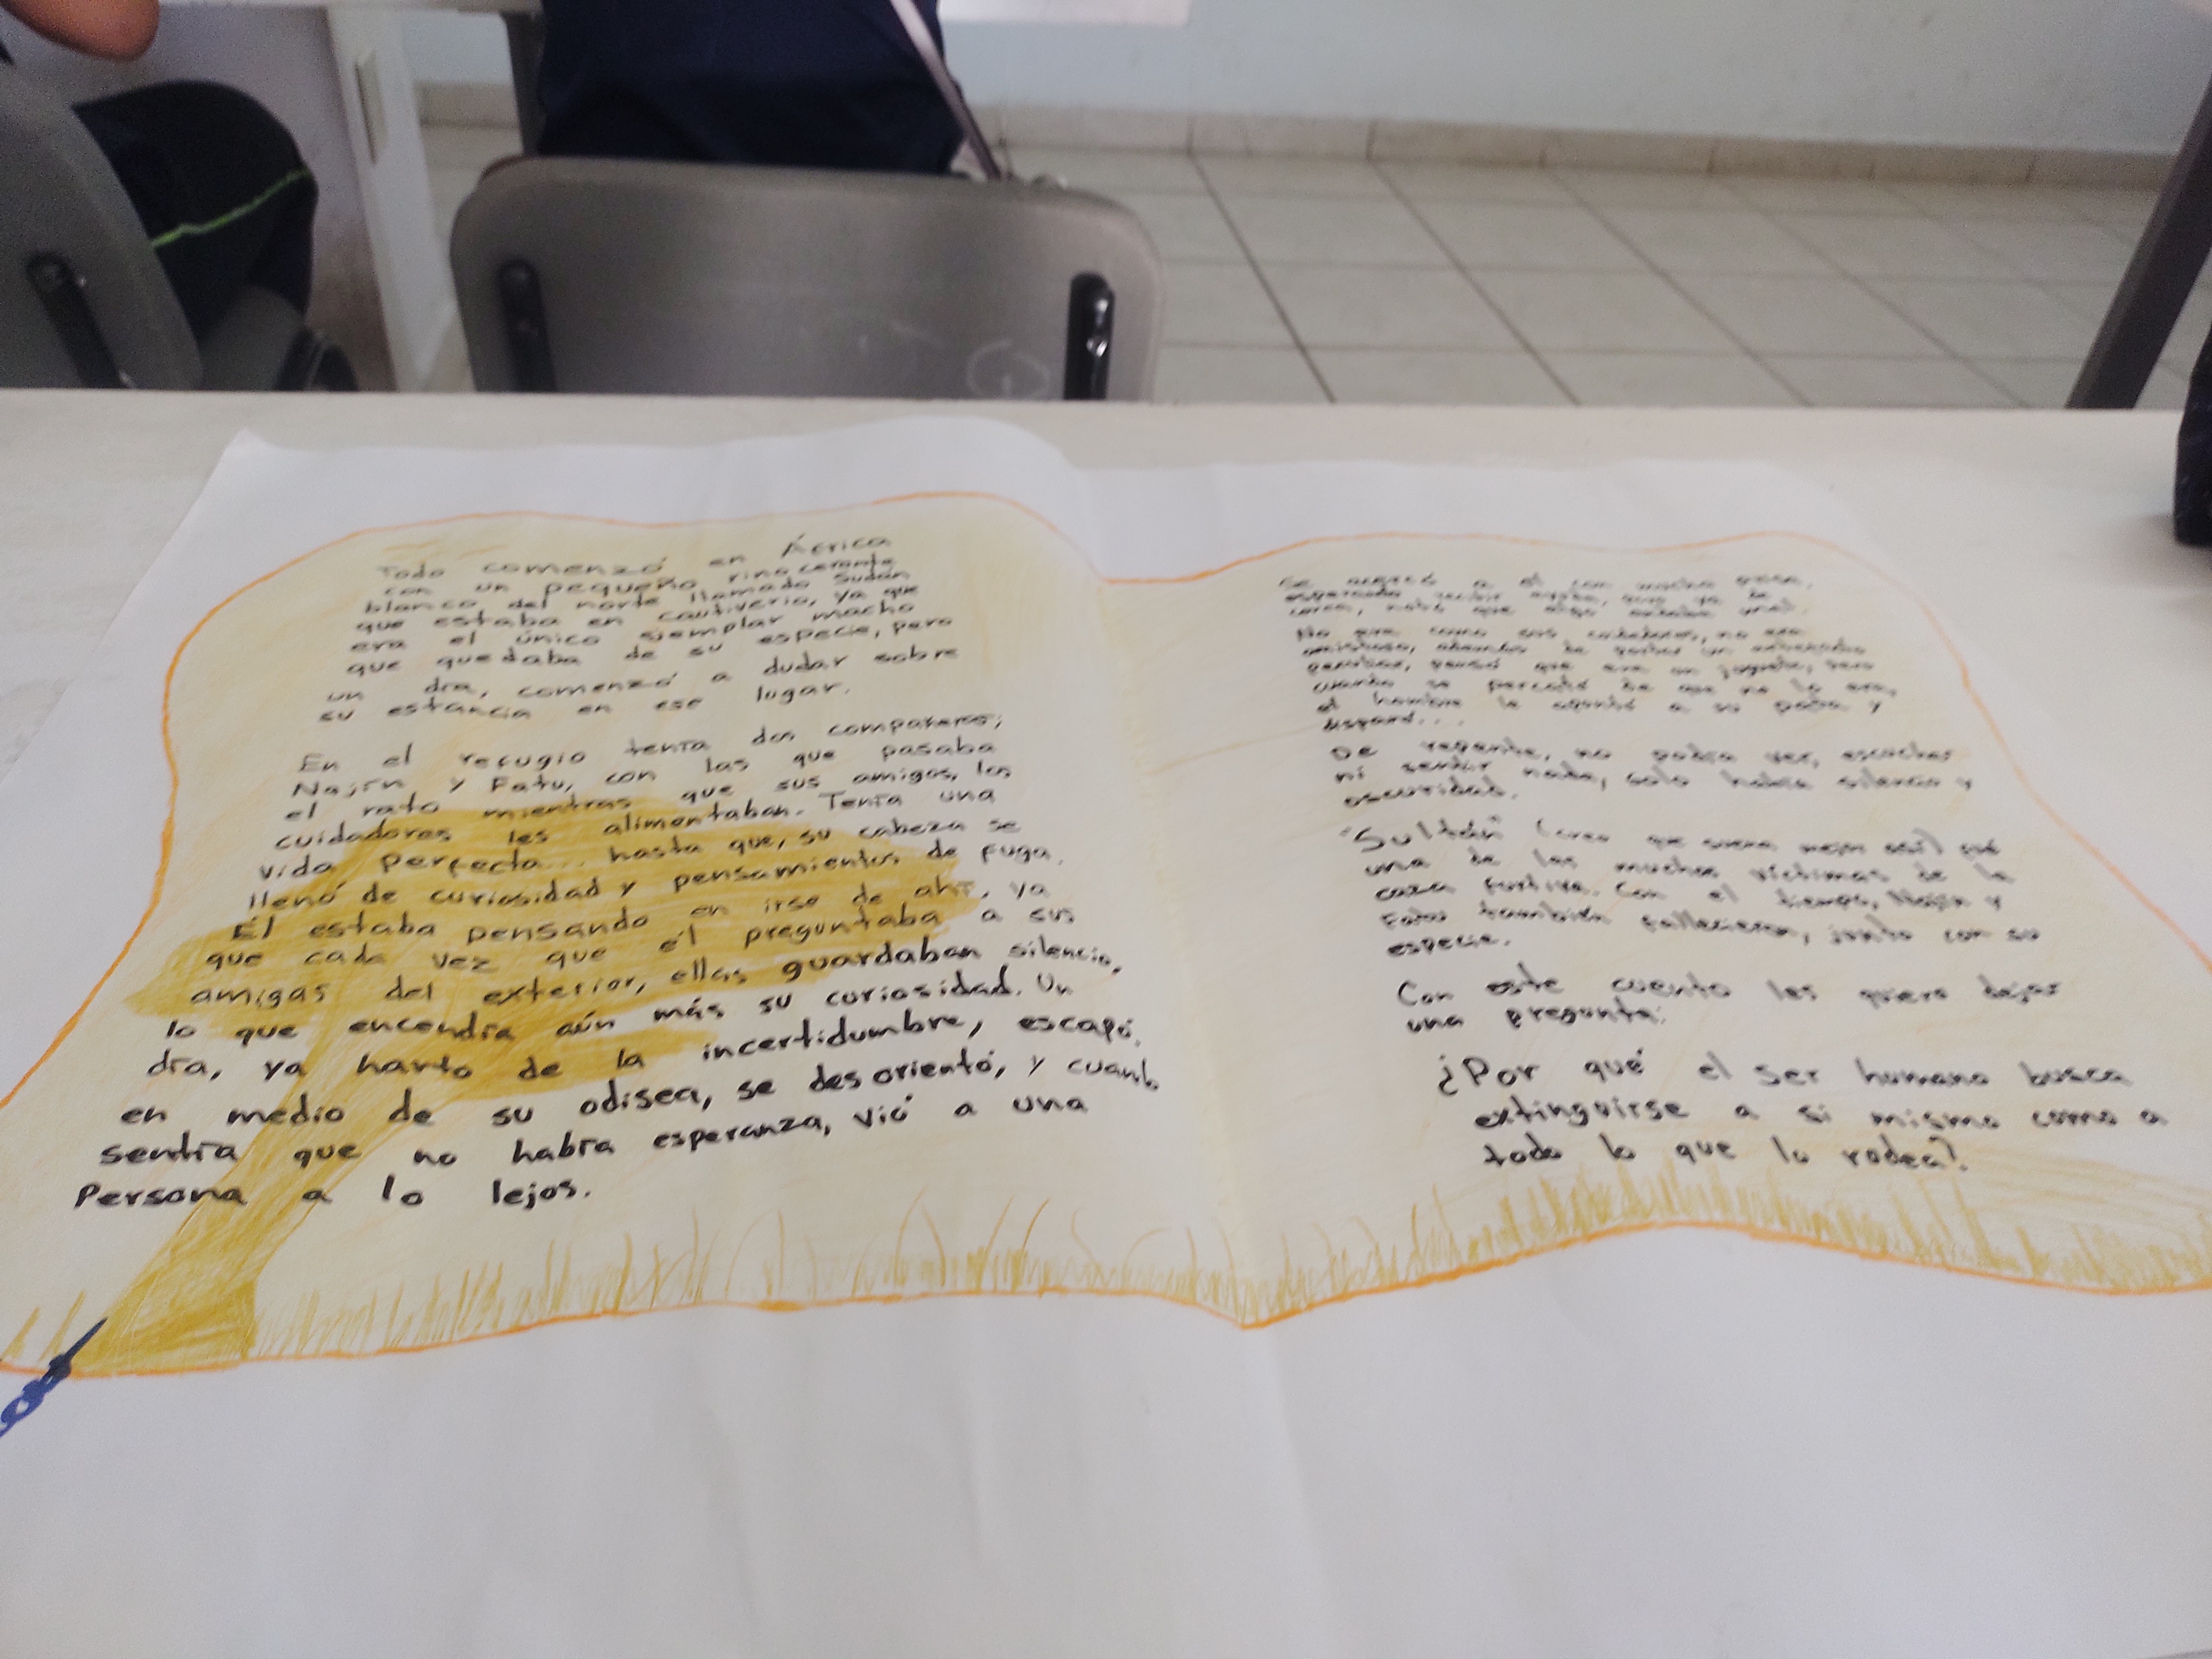 Todo comenzó en África
con un pequeño rinoceronte
blanco del norte llamado Sudán
que estaba en cautiverio, ya que
era el único ejemplar macho
que quedaba de su especie, pero
un día, comenzó a dudar sobre
su estancia en ese lugar.
En el refugio tenía dos compañeras;
Najin y Fatu, con las que pasaba
el rato mientras que sus amigos, los
cuidadores les alimentaban. Tenía una
vida perfecta... hasta que, su cabeza se
llenó de curiosidad y pensamientos de fuga.
Él estaba pensando en irse de ahí, ya
que cada vez que él preguntaba a sus
amigas del exterior, ellas guardaban silencio,
lo que encendía aún más su curiosidad. Un
día, ya harto de la incertidumbre, escapó.
en medio de su odisea, se desorientó, y cuando
sentía que no había esperanza, vió a una
Persona a lo lejos.
Se acercó a él con mucha
esperando recibir ayuda, pero ya de
cerca, notó que algo andaba
No era como sus cuidadores, no era
amistoso, además de
peculiar, pensó que era un juguete, pero
cuando se percató de que no lo era,
el hombre le apuntó a su y
disparó...
De repente, no podía ver, escuchar
ni sentir nada, solo había silencio y
oscuridad.
"Sultán" (creo que suena mejor así) fué
una de las muchas víctimas de la
caza furtiva. Con el tiempo, Najin y
Fatu también fallecieron, junto con su
especie.
Con este cuento les quiero dejar
una pregunta:
¿Por qué el ser humano busca
extinguirse a si mismo como a
todo lo que lo rodea?